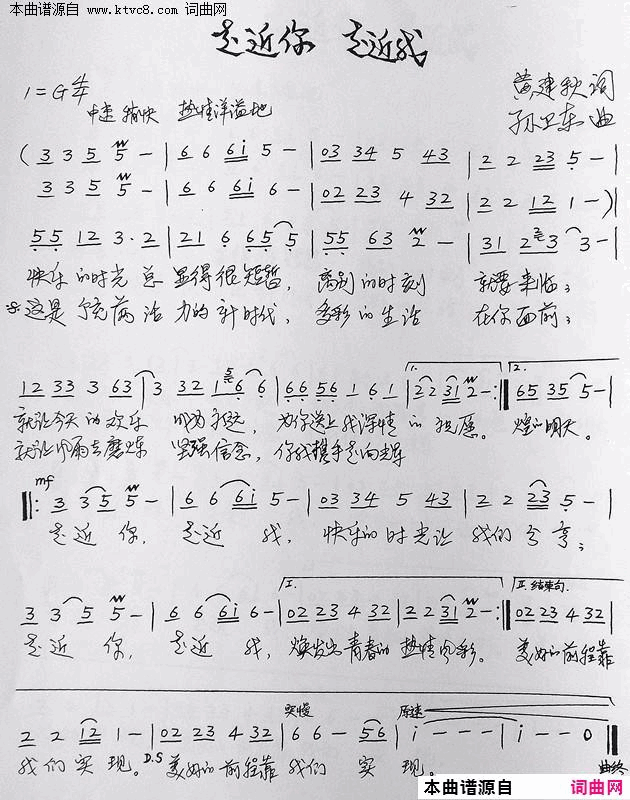 本曲谱源自
www.ktvc8.com 词曲网
走近你 走近我
1=G 4/4
中速 稍快 热情洋溢地
黄建秋词
孙卫东曲
( 3 3 5 5 – | 6 6 6i 5 – | 03 34 5 43 | 2 2 23 5 – |
3 3 5 5 – | 6 6 6i 6 – | 02 23 4 32 | 2 2 12 1 – )|
55 12 3· 2 | 21 6 65 5 | 55 63 2 – | 31 23 3 – |
快乐的时光总 显得很短暂, 离别的时刻 就要来临;
这是个充满活力的新时代, 多彩的生活 在你面前;
1. 2.
12 33 3 63 | 3 32 1 6 6 | 66 56 1 6 1 | 2 2 31 2 – :| 65 35 5 – |
就让今天的欢乐 成为永远, 为你送上我深情的祝愿。 煌的明天。
就让风雨去磨炼 坚强信念, 你我携手走向光辉
mf
‖: 3 3 5 5 – | 6 6 6i 5 – | 03 34 5 43 | 2 2 23 5 – |
走近你, 走近我, 快乐的时光让 我们分享;
I. II. 结束句.
3 3 5 5 – | 6 6 6i 6 – | 02 23 4 32 | 2 2 31 2 – :‖ 02 23 4 32 |
走近你, 走近我, 焕发出青春的热情风彩。 美好的前程靠
突慢 原速
2 2 12 1 – | 02 23 4 32 | 6 6 – 56 | i – – – | i – – 0 ‖
我们实现。 D.S 美好的前程靠 我们 实现。 曲终
本曲谱源自 词曲网